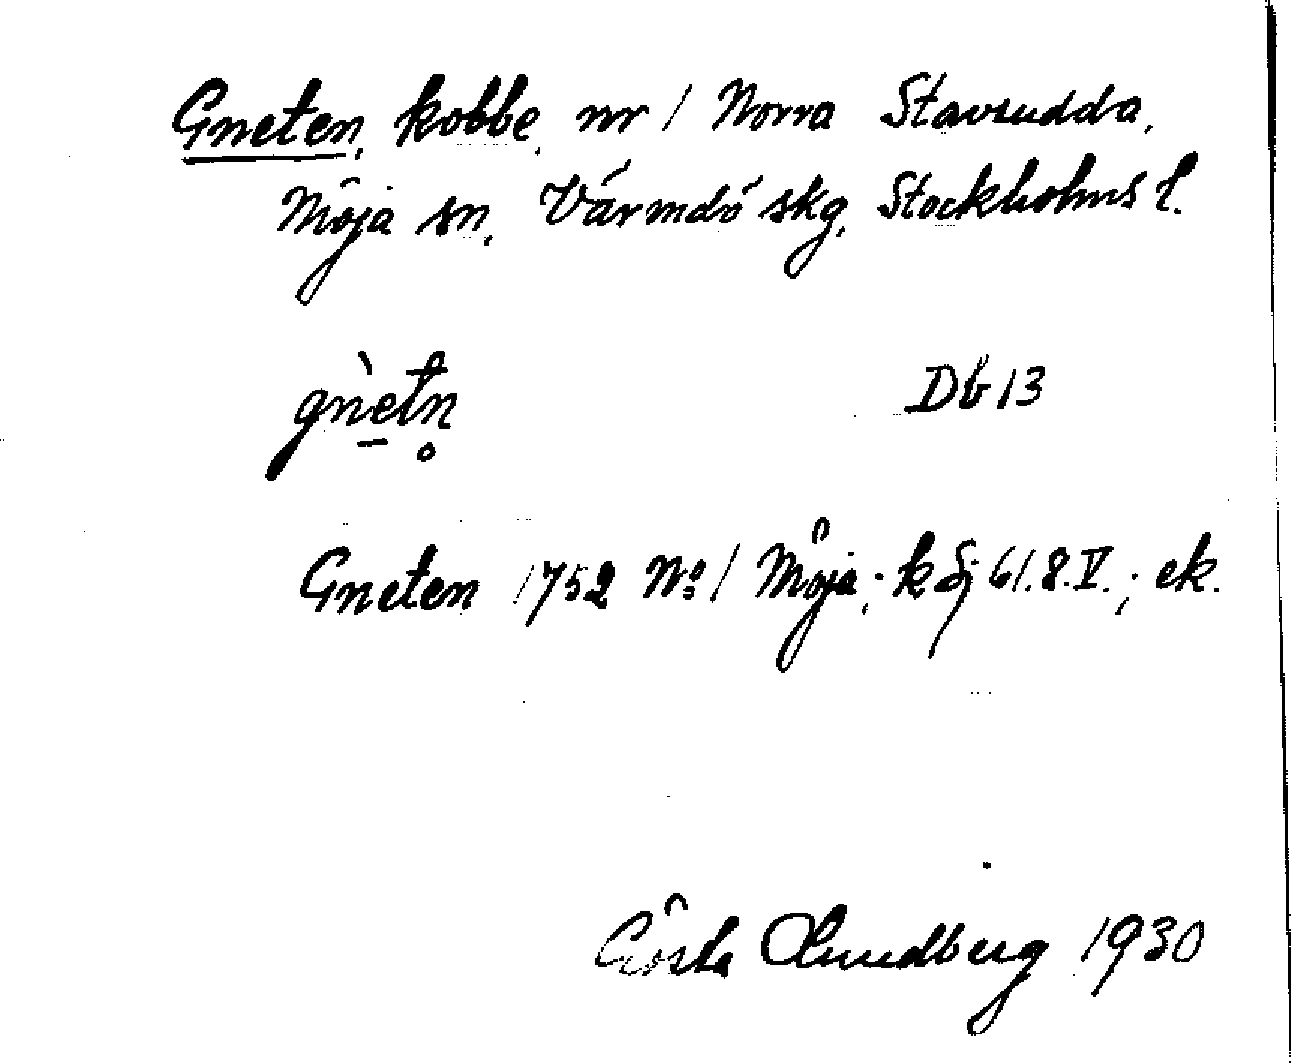 Gneten, kobbe, nr 1 Norra Stavsudda,
Möja sn, Värmdö skg, Stockholms l.
gǹe̲tn̥ Db 13
Gneten 1752 No 1 Möja; k 61.8.V.; ek.
Gösta Lundberg 1930